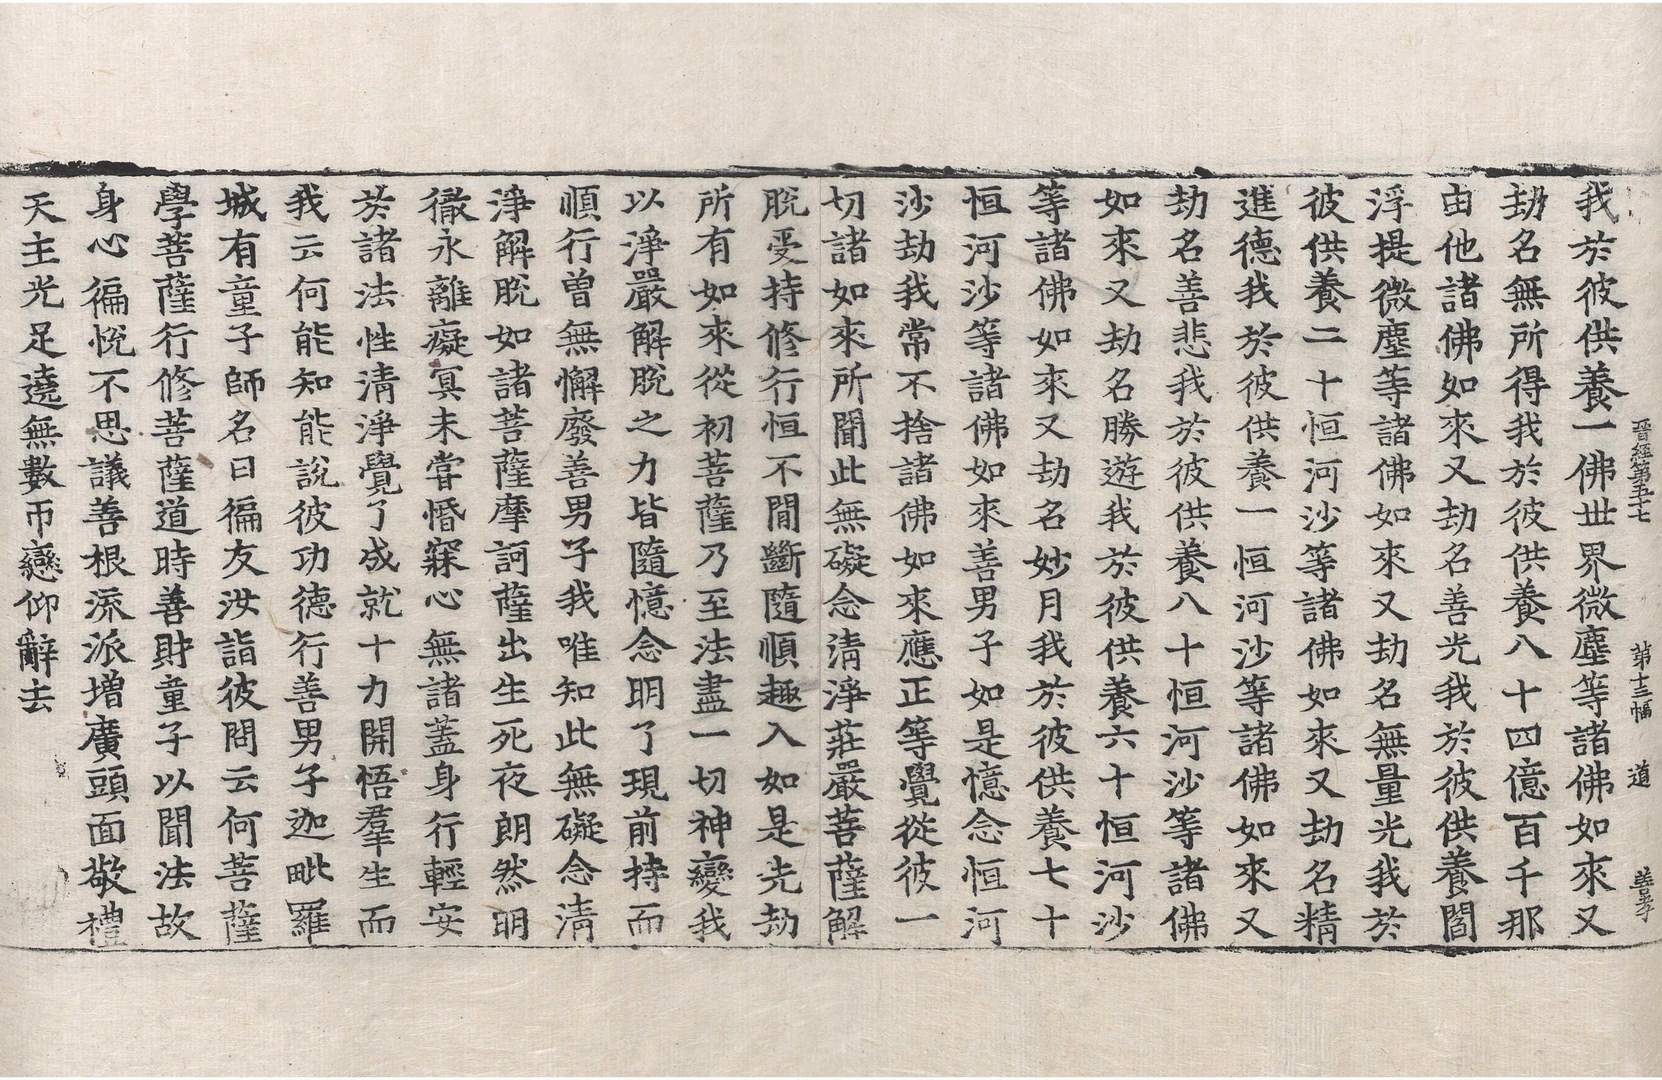 晉經第五十七　第十三幅　道　善孝
我於彼供養一佛世界微塵等諸佛如來又
劫名無所得我於彼供養八十四億百千那
由他諸佛如來又劫名善光我於彼供養閻
浮提微塵等諸佛如來又劫名無量光我於
彼供養二十恒河沙等諸佛如來又劫名精
進德我於彼供養一恒河沙等諸佛如來又
劫名善悲我於彼供養八十恒河沙等諸佛
如來又劫名勝遊我於彼供養六十恒河沙
等諸佛如來又劫名妙月我於彼供養七十
恒河沙等諸佛如來善男子如是憶念恒河
沙劫我常不捨諸佛如來應正等覺從彼一
切諸如來所聞此無礙念清淨莊嚴菩薩解
脫受持修行恒不間斷隨順趣入如是先劫
所有如來從初菩薩乃至法盡一切神變我
以淨嚴解脫之力皆隨憶念明了現前持而
順行曾無懈廢善男子我唯知此無礙念清
淨解脫如諸菩薩摩訶薩出生死夜朗然明
徹永離癡冥未甞惛寐心無諸蓋身行輕安
於諸法性清淨覺了成就十力開悟羣生而
我云何能知能說彼功德行善男子迦毗羅
城有童子師名曰徧友汝詣彼問云何菩薩
學菩薩行修菩薩道時善財童子以聞法故
身心徧悅不思議善根流派增廣頭面敬禮
天主光足遶無數帀戀仰辭去